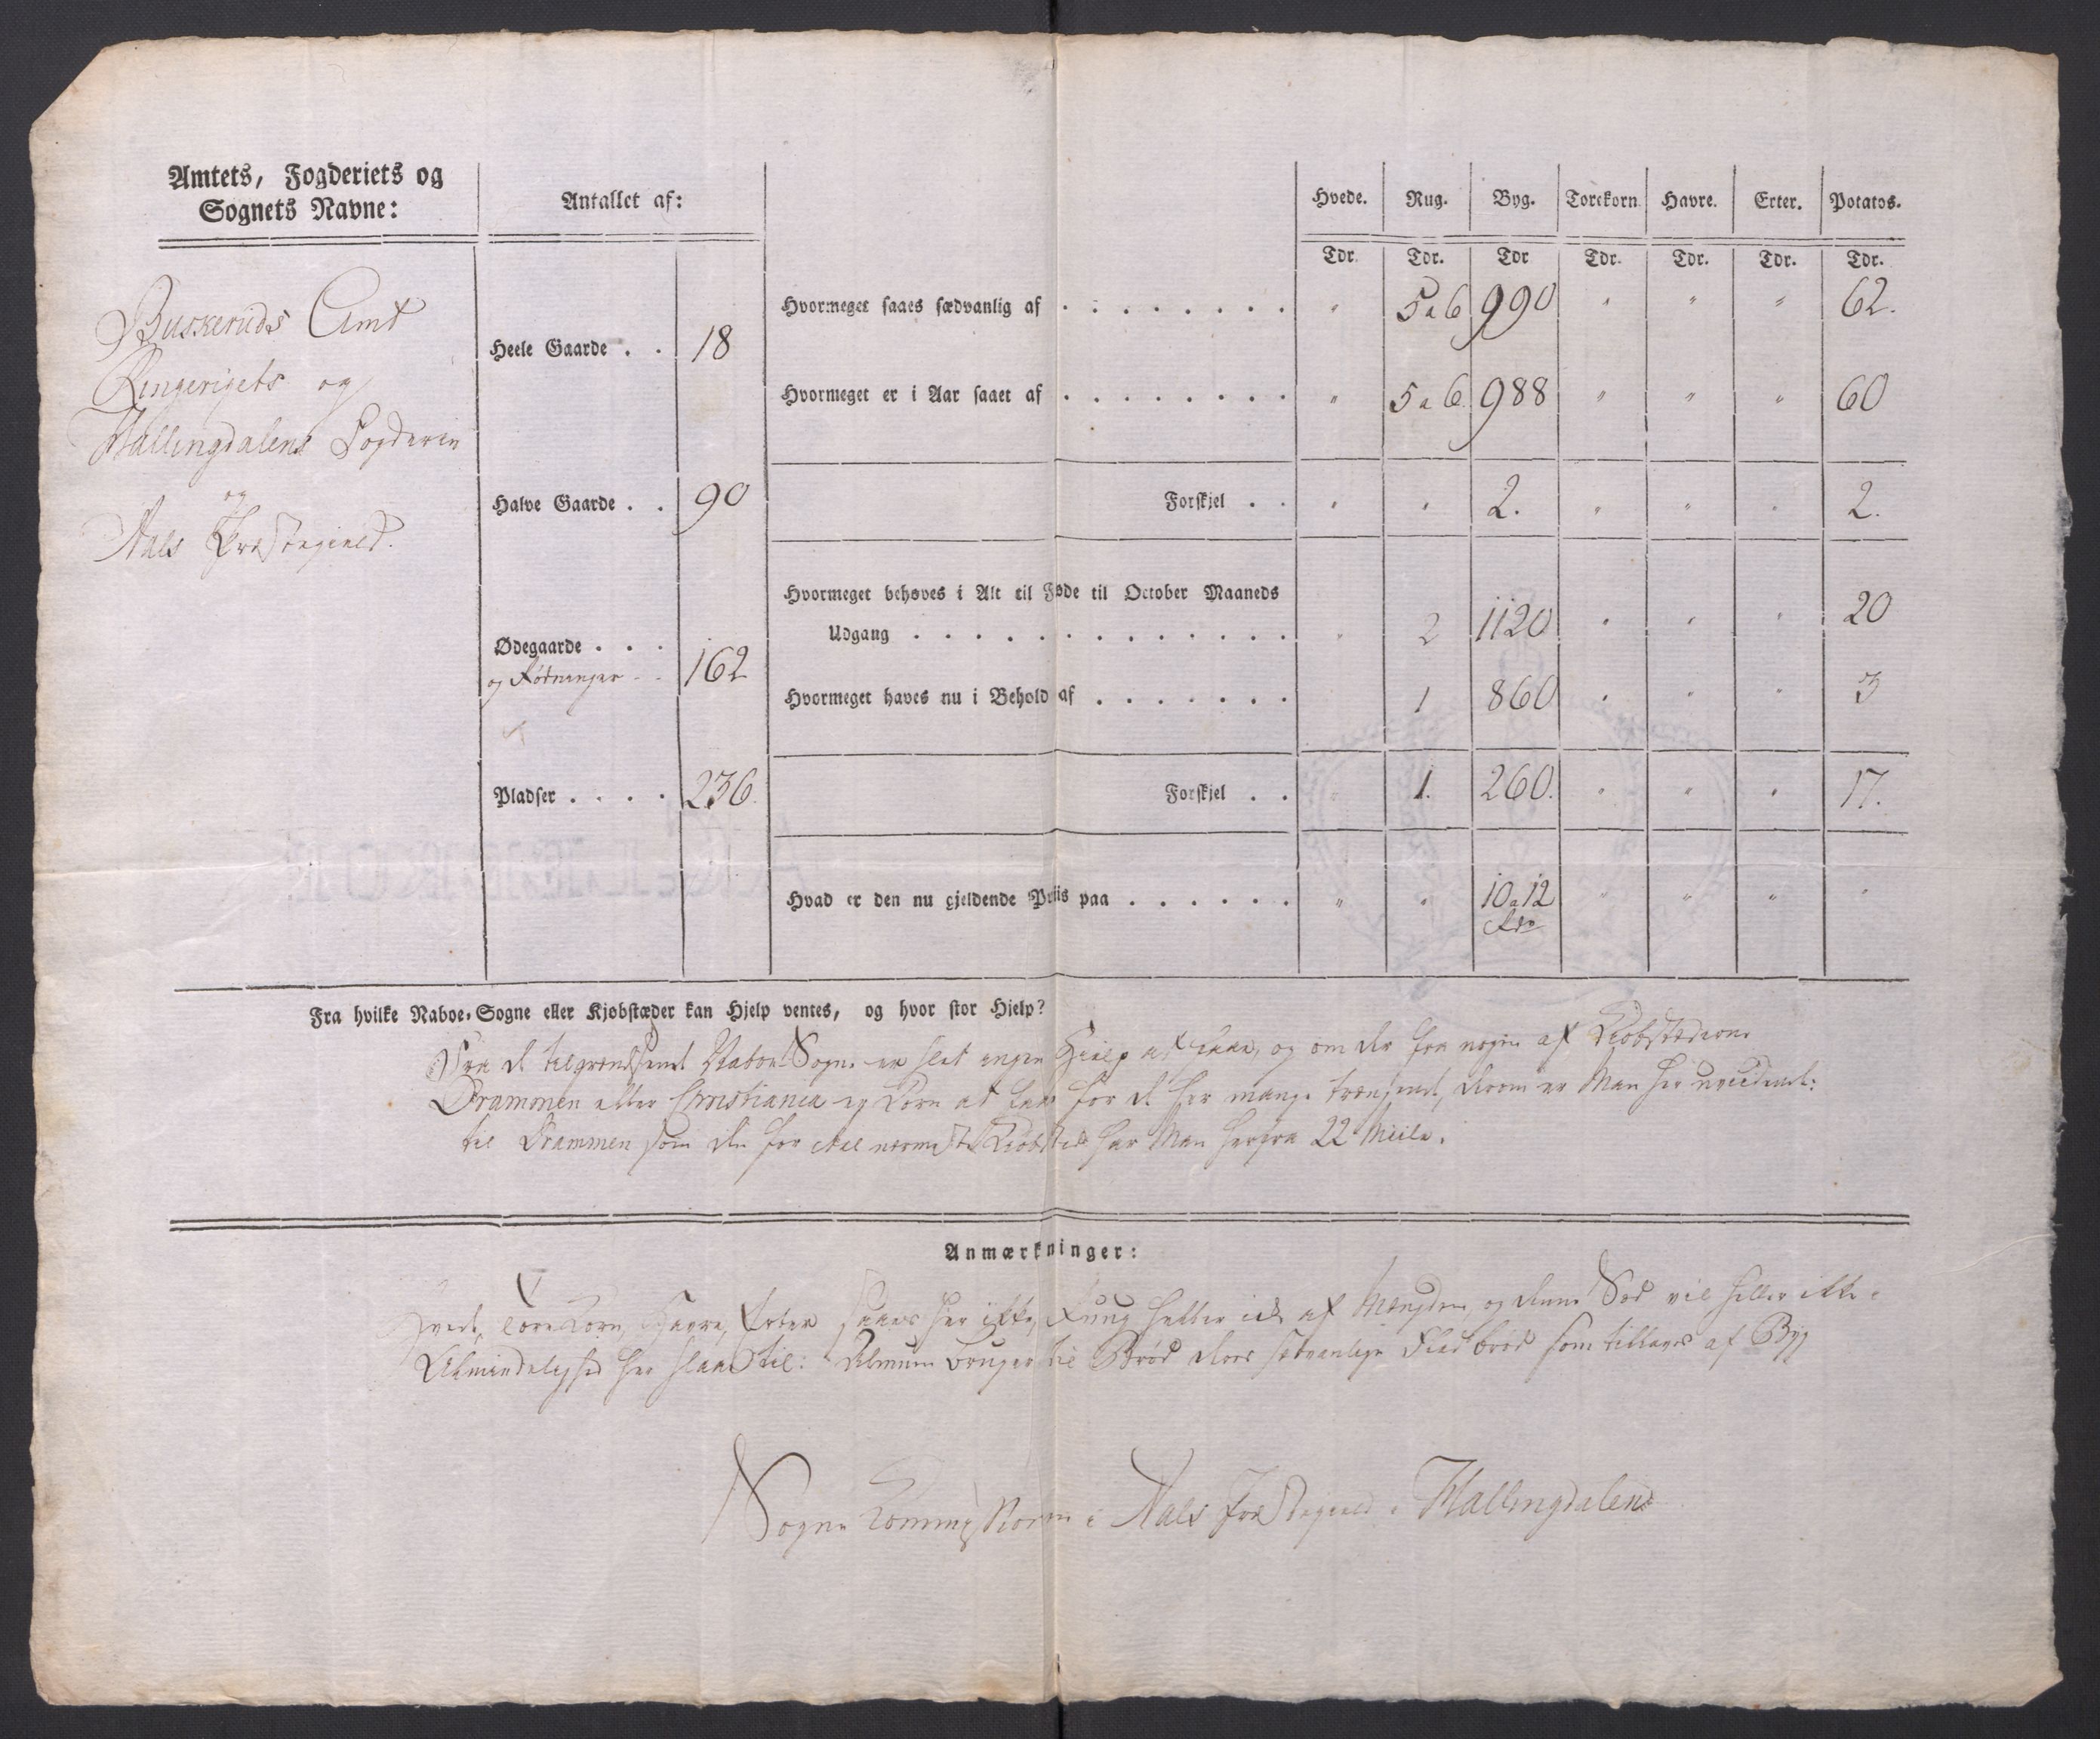 Amtets, Fogderiets og
Sognets Navne:
Antallet af:
Hvede. Rug. Byg. Torekorn. Havre. Erter. Potatos.
Tdr. Tdr. Tdr Tdr. Tdr. Tdr. Tdr.
Buskeruds Amt
Ringerigets og
Hallingdalens Fogderie
og
Aals Præstegield.
Heele Gaarde . . 18
Halve Gaarde . . 90
Ødegaarde . . .
og Rødninger . . 162
Pladser . . . . 236.
Hvormeget saaes sædvanlig af . . . . . . . . " 5 a 6 990 " " " 62.
Hvormeget er i Aar saaet af . . . . . . . . " 5 a 6. 988 " " " 60
Forskjel . . " " 2. " " " 2.
Hvormeget behøves i Alt til Føde til October Maaneds
Udgang . . . . . . . . . . . . . " 2 1120 " " " 20
Hvormeget haves nu i Behold af . . . . . . . 1 860 " " " 3
Forskjel . . " 1. 260. " " " 17.
Hvad er den nu gjeldende Priis paa . . . . . . " " 10 a 12 " " " "
Rdr
Fra hvilke Naboe-Sogne eller Kjøbstæder kan Hjelp ventes, og hvor stor Hjelp?
Fra de tilgrændsende Naboe Sogne er slet ingen Hielp at faae, og om der fra nogen af Kiøbstæderne
Drammen eller Christiania er Korn at faae for de her mange trængende, derom er Man her uvidende:
til Drammen som den for Aal nærmeste Kiøbsted har Man herfra 22 Miile.
Anmærkninger:
Hvede, Torekorn, Havre, Erter saaes her ikke, Rug heller ick af Mængden, og denne Sæd vil heller ikke i
Almindelighed her slaae til: Almuen bruger til Brød deres sædvanlige Fladbrød som tillaves af Byg
Sogne Commissionen i Aals Præstegield i Hallingdalen